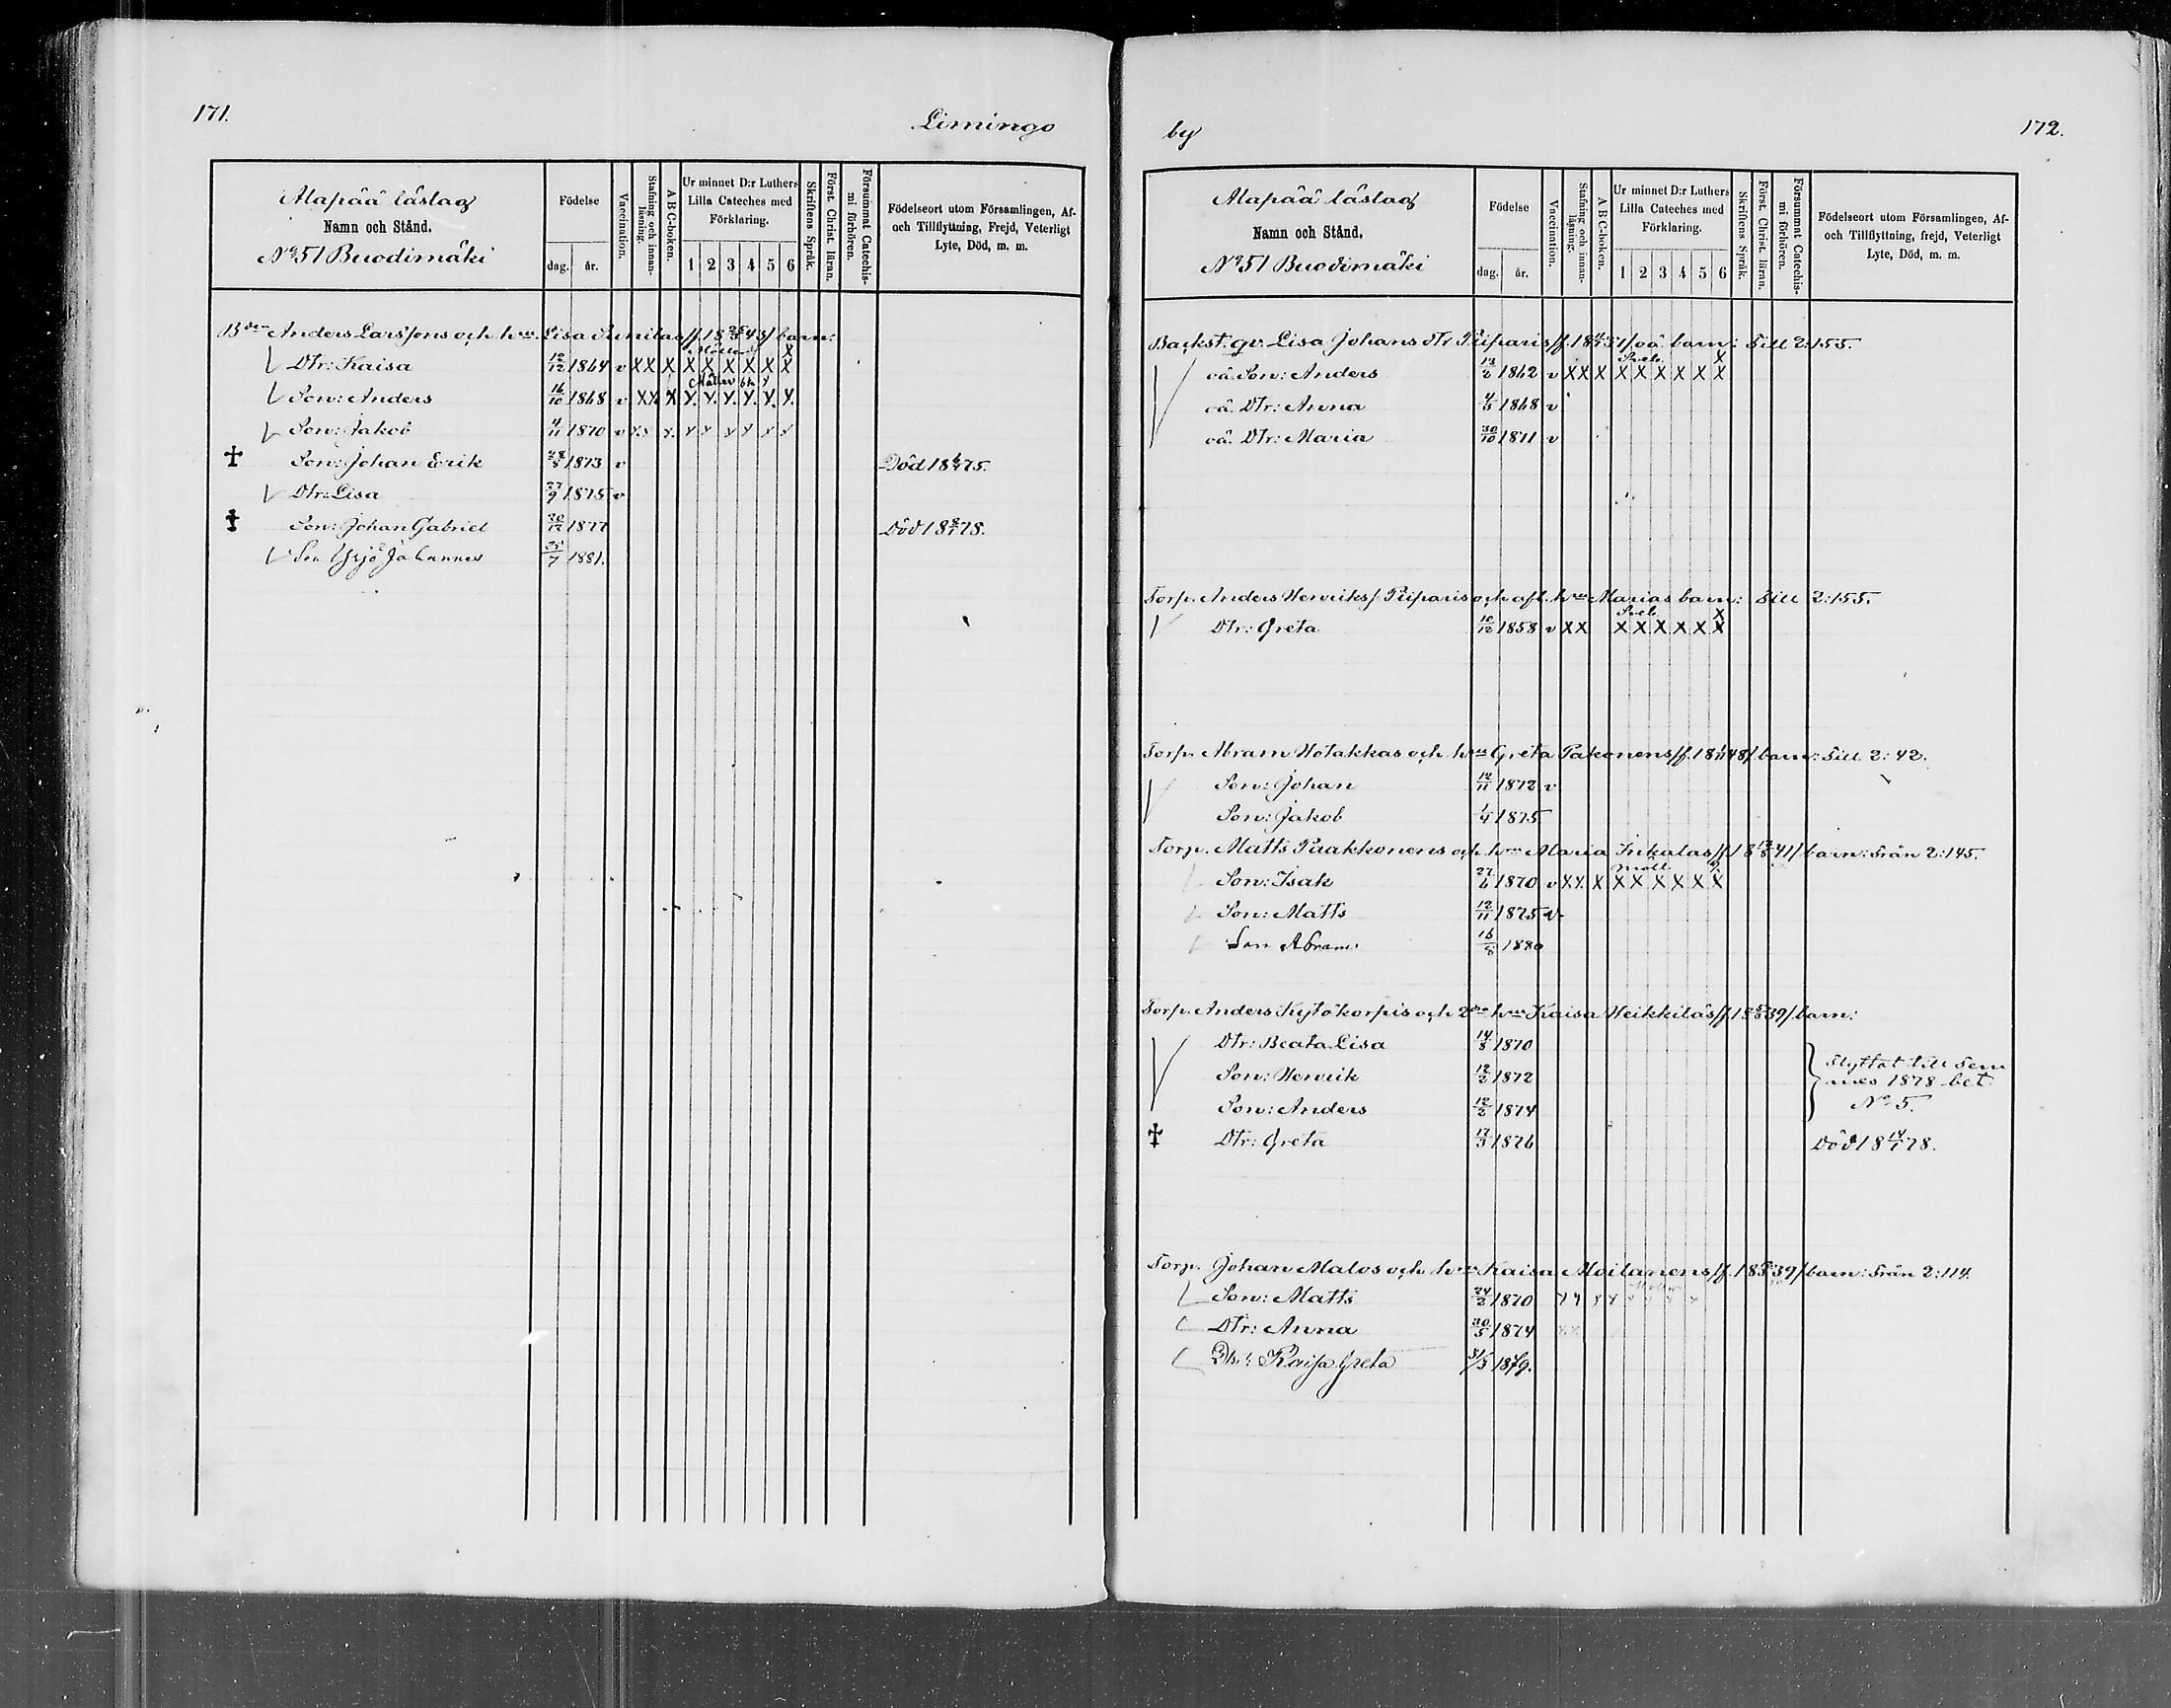 171.
Limingo
Alapää läslag
Namn och Stånd.
No 51 Buodimäki
Födelse
dag. år.
Vaccination.
Stafning och innanläsning.
A B C-boken.
Ur minnet D:r Luthers
Lilla Cateches med
Förklaring.
1 2 3 4 5 6
Skriftens Språk.
Först. Christ. läran.
Försummat Catechismi förhören.
Födelseort utom Församlingen, Af-
och Tillflyttning, Frejd, Veterligt
Lyte, Död, m. m.
Bden Anders Larssons och hus. Lisa Junilas /f. 18 25/3 43/ barn:
Dtr: Kaisa 12/12 1864 v X X X X X X X X X X
Son: Anders 16/10 1868 v X X X X. X. X. X. X. X.
Son: Jakob 4/11 1870 v x x x. x x x x x x
Son: Johan Erik 28/5 1873 v Död 18 6/4 75.
Dtr: Lisa 27/9 1875 v
Son: Johan Gabriel 20/12 1877 Död 18 8/1 78.
Son Yrjö Johannes 25/7 1881.
by
172.
Alapää läslag
Namn och Stånd.
No 51 Buodimäki
Födelse
dag. år.
Vaccination.
Stafning och innanläsning.
A B C-boken.
Ur minnet D:r Luthers
Lilla Cateches med
Förklaring.
1 2 3 4 5 6
Skriftens Språk.
Först. Christ. läran.
Försummat Catechismi förhören.
Födelseort utom Församlingen, Af-
och Tillflyttning, frejd, Veterligt
Lyte, Död, m. m.
Backst. qv. Lisa Johans dtr Piiparis /f. 18 51/ oä barn: Till 2:155.
oä. Son: Anders 13/2 1862 v X X X X X X X X X
oä. Dtr: Anna 4/3 1868 v
oä. Dtr: Maria 30/10 1871 v
Torp. Anders Henriks/ Piiparis och afl. hus Marias barn: Till 2:155.
Dtr: Greta 10/12 1858 v X X X X X X X X
Torp. Abram Hotakkas och hus Greta Pakonens /f. 18 1/11 48/ barn: Till 2:42.
Son: Johan 12/11 1872 v
Son: Jakob 1/4 1875
Torp. Matts Paakkonens och hus Maria Inkalas /f. 18 41/ barn: Från 2:145.
Son: Isak 27/6 1870 v X X. X X X X X X X
Son: Matts 12/11 1875 v.
Son Abram 16/8 1880
Torp. Anders Kytökorpis och 2dra hus Kaisa Heikkiläs /f. 18 39/ barn:
Dtr: Beata Lisa 14/3 1870
Son: Henrik 12/2 1872
Son: Anders 12/2 1874
Flyttat till Tem
mes 1878 bet
No 5.
Dtr: Greta 17/3 1876 Död 18 14/1 78.
Torp. Johan Malos och hus Kaisa Moilanens /f. 18 39/ barn: Från 2:114.
Son: Matts 24/2 1870
Dtr: Anna 30/5 1874
Dtr: Kaisa Greta 31/3 1879.